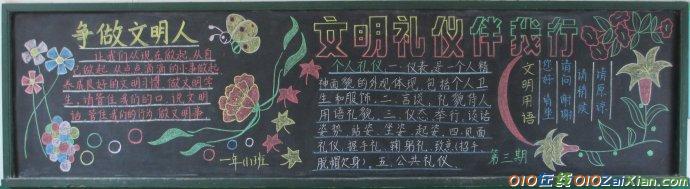 争做文明人
让我们从现在做起,从自
我做起,从点点滴滴的小事做起,
养成良好的文明习惯,做文明学
生,请管住我们的口,说文明
话,管住我们的行为,做文明事。
一年(1)班
文明礼仪伴我行
个人礼仪一、仪表:是一个人精
神面貌的外观体现,包括个人卫
生和服饰。二、言谈:礼貌待人
用语礼貌。三、仪态、举行:谈话
姿势 站姿 坐姿 起姿。四、见面
礼仪。握手礼 鞠躬礼 致意(招手、
脱帽欠身)。五、公共礼仪。
文明用语
您好 请坐
请问 谢谢
请稍候
请原谅
第三期
010在线 010ZaiXian.com